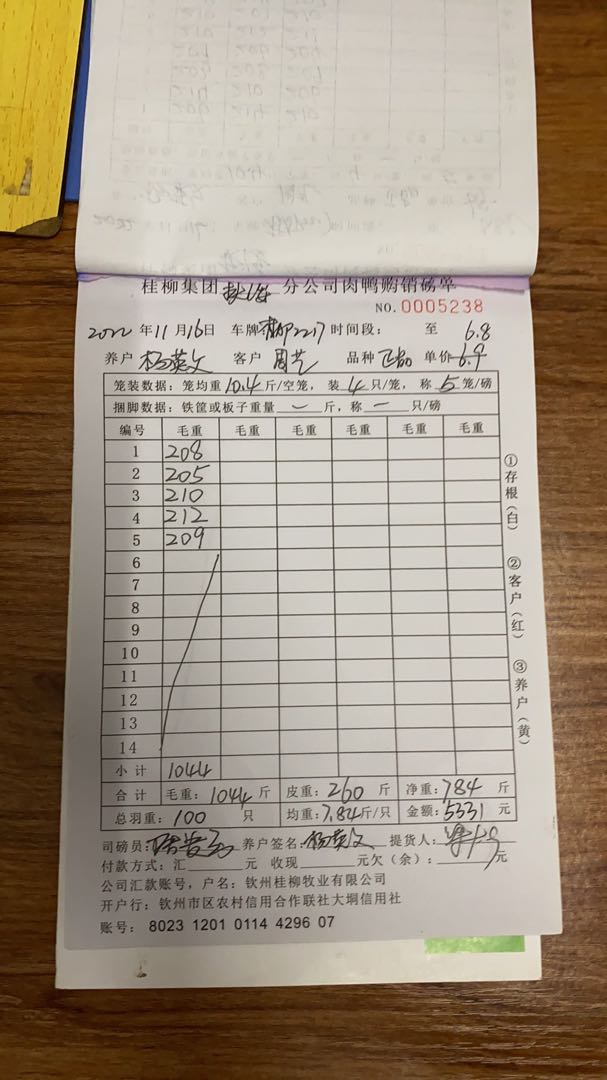 桂柳集团 分公司肉鸭购销磅单
NO. 0005238
2022年11月16日 车牌 2217 时间段: 至 6.8
养户 杨英文 客户 周芝 品种 单价 6.9
笼装数据:笼均重10.4斤/空笼,装4只/笼,称5笼/磅
捆脚数据:铁筐或板子重量 — 斤,称 — 只/磅
编号 毛重 毛重 毛重 毛重 毛重 毛重
1 208
2 205
3 210
4 212
5 209
6
7
8
9
10
11
12
13
14
小计 1044
合计 毛重:1044斤 皮重:260斤 净重:784斤
总羽重:100只 均重:7.84斤/只 金额:5331元
司磅员: 养户签名:杨英文 提货人:
付款方式:汇 元 收现 元欠(余): 元
公司汇款账号,户名:钦州桂柳牧业有限公司
开户行:钦州市区农村信用合作联社大垌信用社
账号: 8023 1201 0114 4296 07
①存根(白)
②客户(红)
③养户(黄)